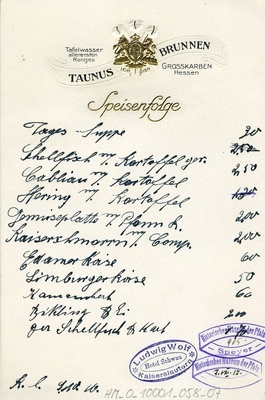 Tafelwasser
allerersten
Ranges
TAUNUS BRUNNEN
GROSSKARBEN
Hessen
Speisenfolge
Tages Suppe 20
Shellfisch m/ Kartoffel 2,50
Cabliau m/ Kartoffel 2,50
Hering m/ Kartoffel
Gemüseplatte m/ 2,00
Kaiserschmarrn m/ Comp. 2,00
Edamerkäse 60
Limburgerkäse 50
60
Bükling & Ei
Schellfisch & Kart
Ludwig Wolf
Hotel Schwan
Kaiserslautern
Historisches Museum der Pfalz
Speyer
Historisches Museum der Pfalz
HM_0_10001_058_07